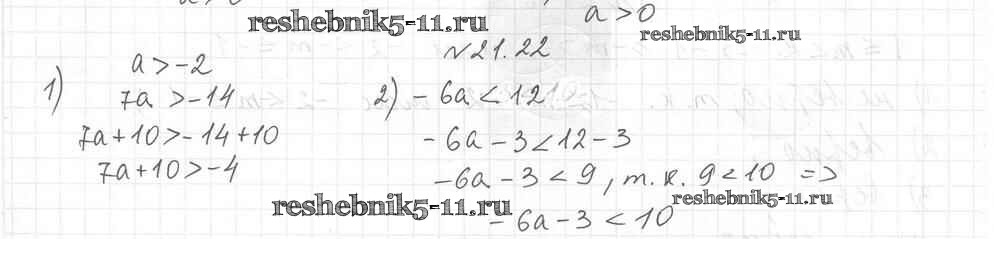 a > 0
reshebnik5-11.ru
reshebnik5-11.ru
№21.22
1) a > -2
7a > -14
7a + 10 > -14 + 10
7a + 10 > -4
2) -6a < 12
-6a - 3 < 12 - 3
-6a - 3 < 9, т.к. 9 < 10 =>
-6a - 3 < 10
reshebnik5-11.ru
reshebnik5-11.ru